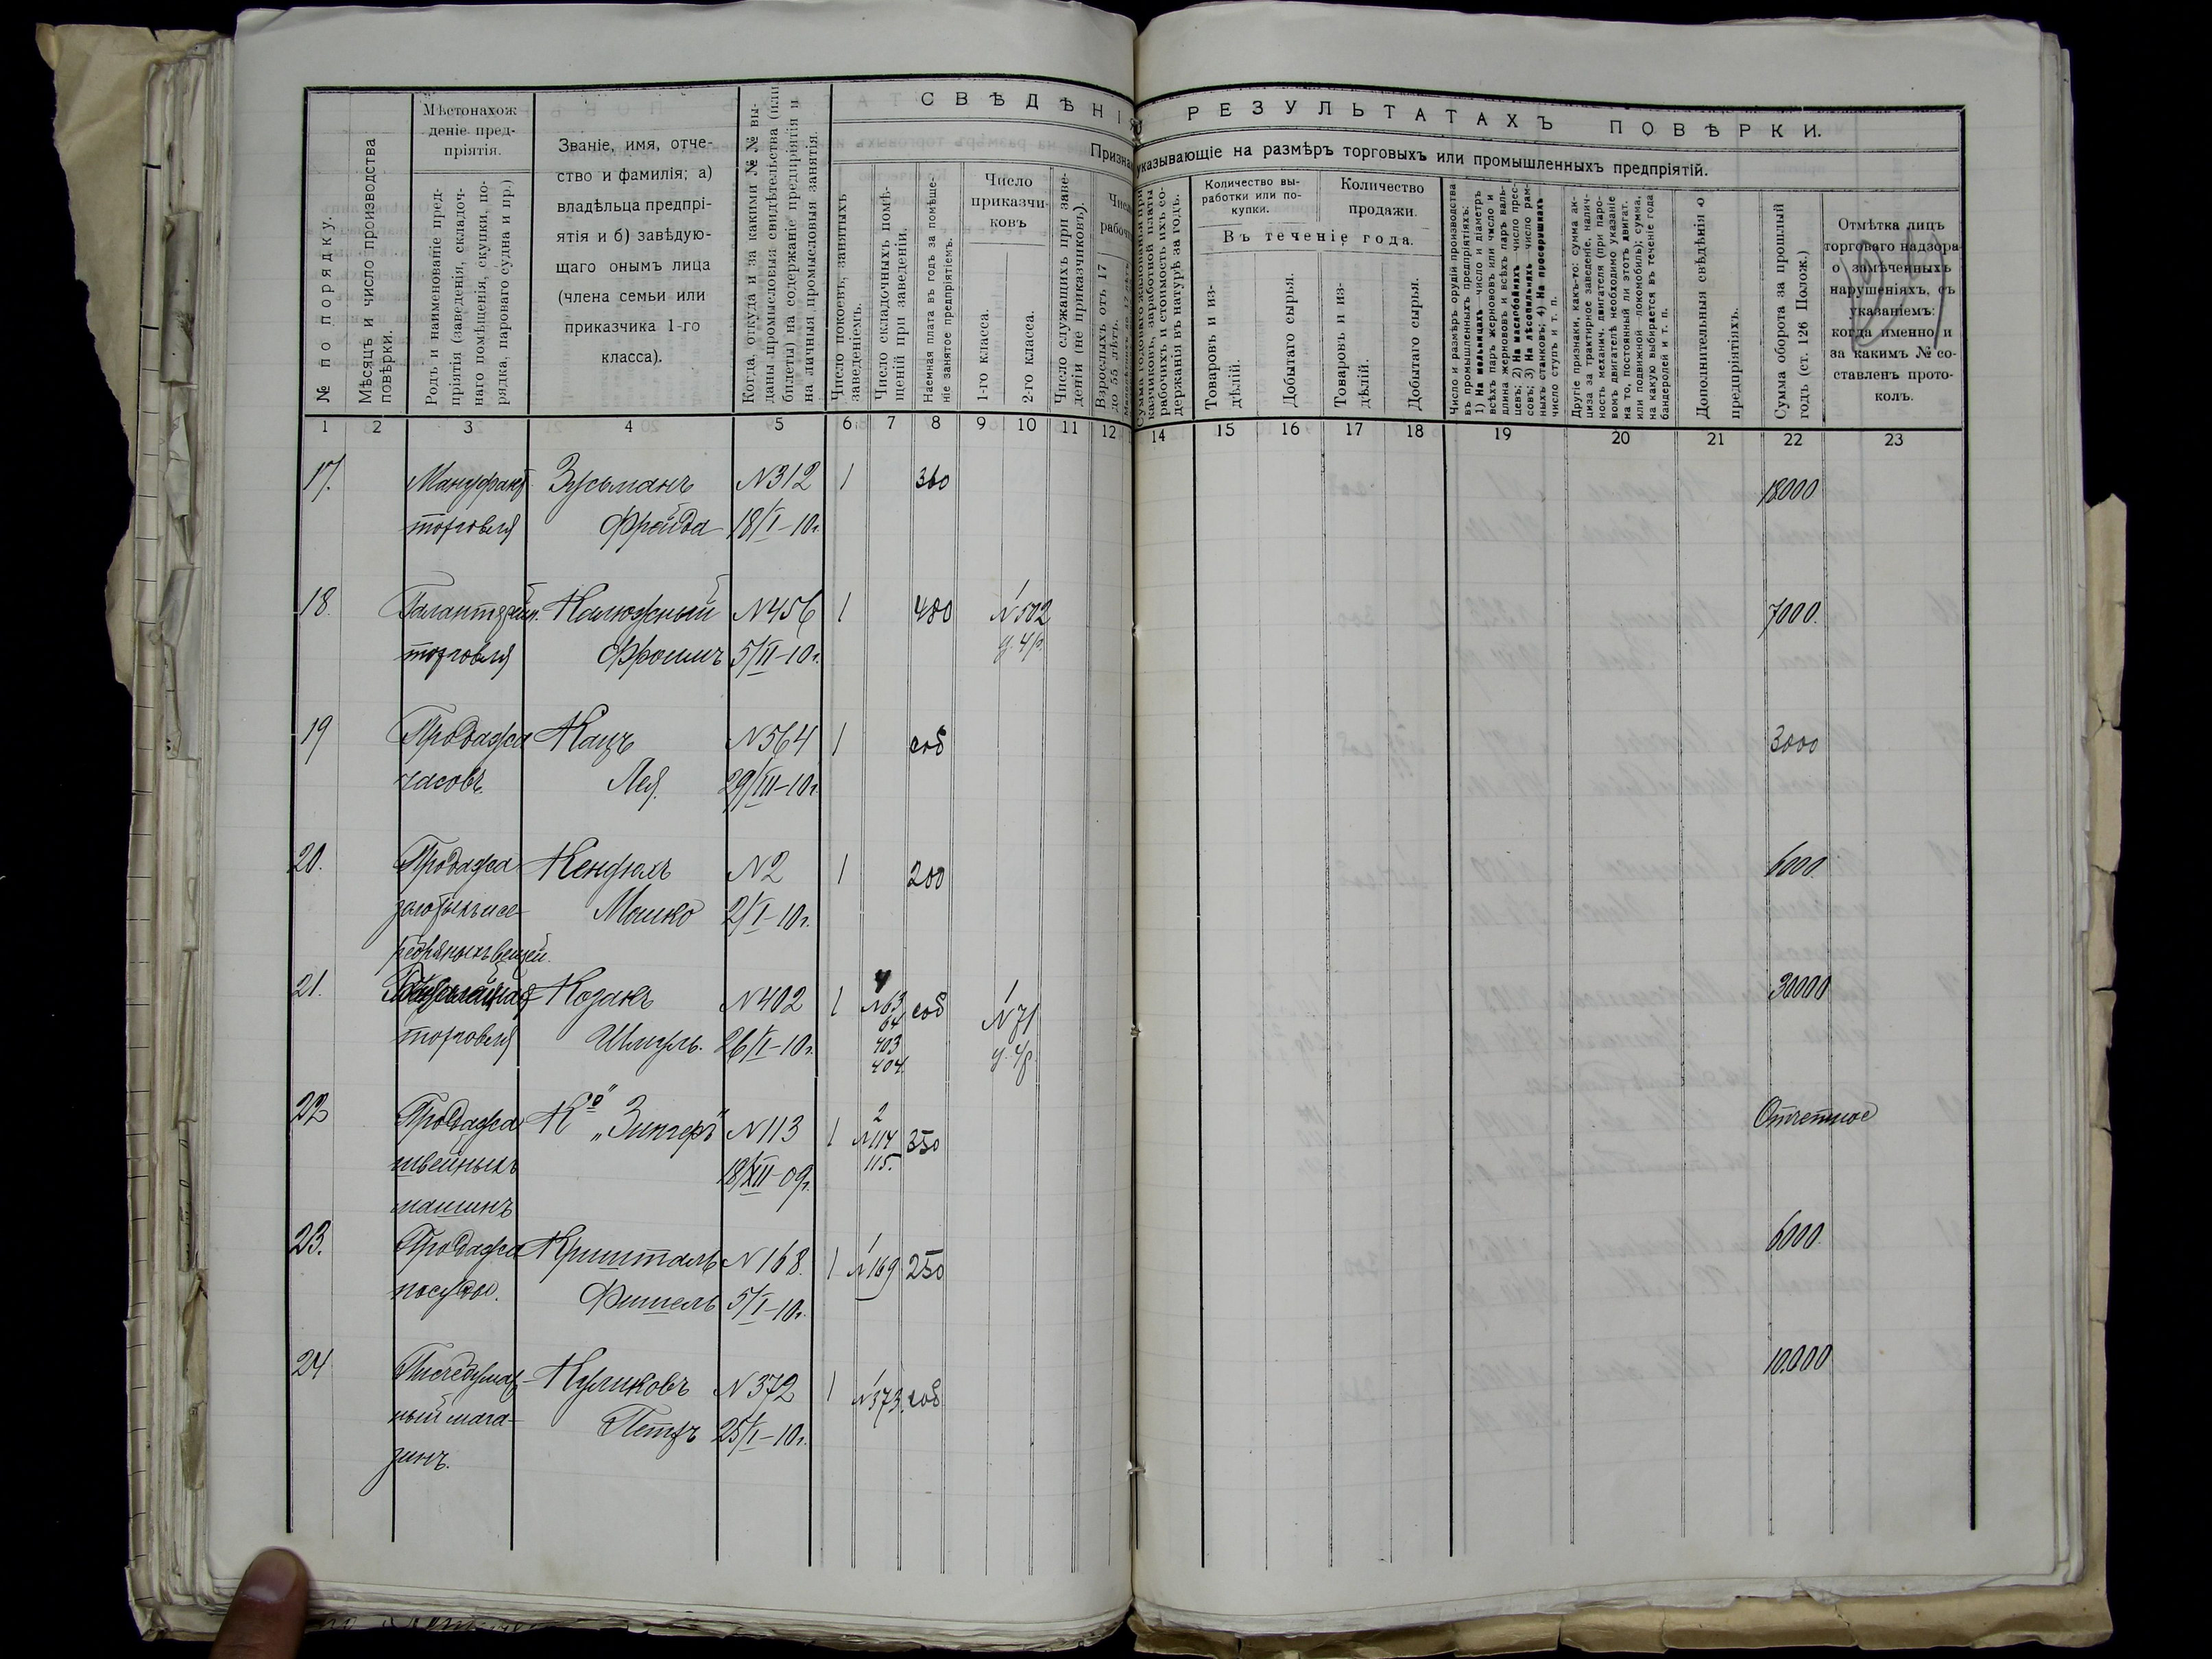 СВѢДѢНІЯ О РЕЗУЛЬТАТАХЪ ПОВѢРКИ.
Признаки, указывающіе на размѣръ торговыхъ или промышленныхъ предпріятій.
№ по порядку.
Мѣсяцъ и число производства
повѣрки.
Мѣстонахож
деніе пред-
пріятія.
Родъ и наименованіе пред-
пріятія (заведенія, складоч-
наго помѣщенія, скупки, по-
рядка, парового судна и пр.)
Званіе, имя, отче-
ство и фамилія; а)
владѣльца предпрі-
ятія и б) завѣдую-
щаго онымъ лица
(члена семьи или
приказчика 1-го
класса).
Когда, откуда и за какими № № вы-
даны промысловыя свидѣтельства (или
билеты) на содержаніе предпріятія и
на личныя промысловыя занятія.
Число покоевъ, занятыхъ
заведеніемъ.
Число складочныхъ помѣ-
щеній при заведеніи.
Наемная плата въ годъ за помѣще-
ніе занятое предпріятіемъ.
Число
приказчи-
ковъ
1-го класса.
2-го класса.
Число служащихъ при заве-
деніи (не приказчиковъ).
Число
рабочи
Взрослыхъ отъ 17
до 55 лѣтъ.
Сумма годового жалованья при-
казчиковъ, заработной платы
рабочихъ и стоимость ихъ со-
держанія въ натурѣ за годъ.
Количество вы-
работки или по-
купки.
Количество
продажи.
Въ теченіе года.
Товаровъ и из-
дѣлій.
Добытаго сырья.
Товаровъ и из-
дѣлій.
Добытаго сырья.
Число и размѣръ орудій производства
въ промышленныхъ предпріятіяхъ:
1) На мельницахъ—число и діаметръ
всѣхъ паръ жернововъ или число и
длина жернововъ и всѣхъ паръ валь-
цевъ; 2) На маслобойняхъ—число прес-
совъ; 3) На лѣсопильняхъ—число рам-
ныхъ станковъ; 4) На просорушкахъ
число ступъ и т. п.
Другіе признаки, какъ-то: сумма ак-
циза за трактирное заведеніе, налич-
ность механич. двигателя (при паро-
вомъ двигателѣ необходимо указаніе
на то, постоянный ли этотъ двигат.
или подвижной—локомобиль); сумма,
на какую выбирается въ теченіе года
бандеролей и т. п.
Дополнительныя свѣдѣнія о
предпріятіяхъ.
Сумма оборота за прошлый
годъ (ст. 126 Полож.)
Отмѣтка лицъ
торговаго надзора
о замѣченныхъ
нарушеніяхъ, съ
указаніемъ:
когда именно и
за какимъ № со-
ставленъ прото-
колъ.
1 2 3 4 5 6 7 8 9 10 11 12 14 15 16 17 18 19 20 21 22 23
17. Мануфакт. Зусьманъ N312 1 360 18000
торговля Фрейда 18/I-10г.
18. Галантерейн. Калюжный N456 1 480 1 N502 7000.
торговля Фроимъ 5/II-10г. ц. 4р.
19 Продажа Кацъ N564 1 соб 3000
часовъ. Лея. 29/III-10г.
20. Продажа Кендюхъ N2 1 200 6000.
золотыхъ и се- Мошко 2/I-10г.
ребряныхъ вещей.
21. Козакъ N402 1 4 N63 соб 1 N71 30000
торговля Шмуль. 26/I-10г. 64 ц. 4р.
403
404.
22 Продажа Кº „Зингеръ" N113 1 2 N114 350 Отчетное
швейныхъ 18/XII-09г. 115.
машинъ
23. Продажа Кришталь N168. 1 1 N169 250 6000.
посуды. Фишель 5/I-10г.
24 Писчебумаж- Куликовъ N372 1 1 N373. соб 10.000
ный мага- Петръ 25/I-10г.
зинъ.